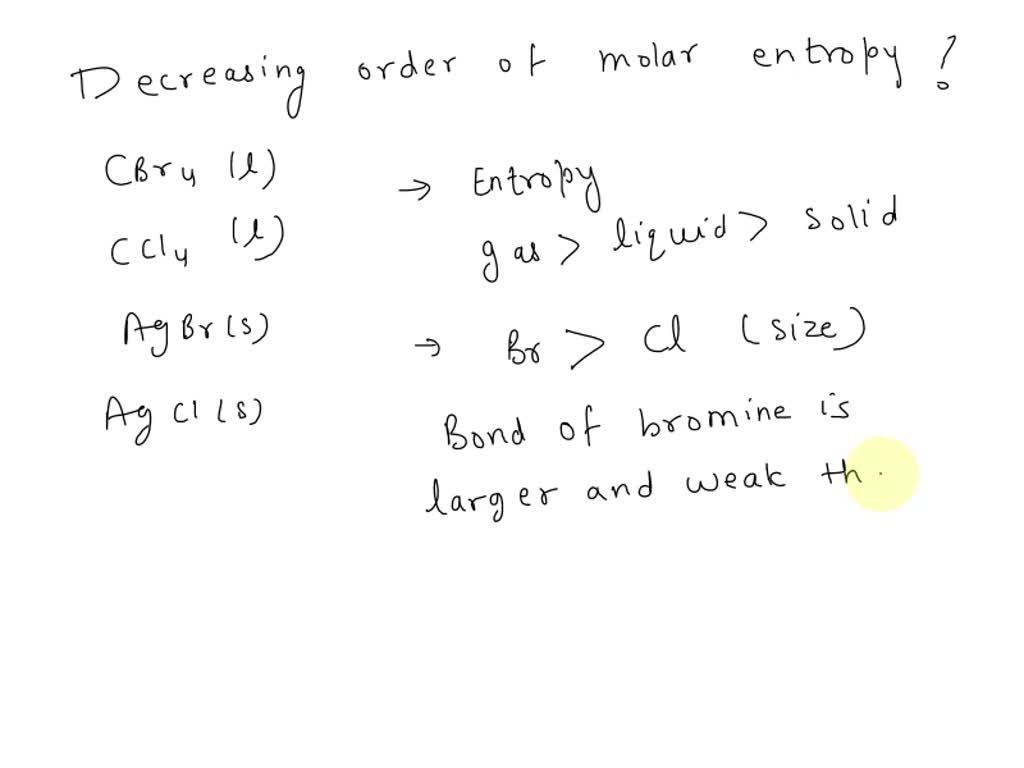 Decreasing order of molar entropy ?
CBr4 (l)
CCl4 (l)
AgBr(s)
AgCl(s)
→ Entropy
gas > liquid > solid
→ Br > Cl (size)
Bond of bromine is
larger and weak th